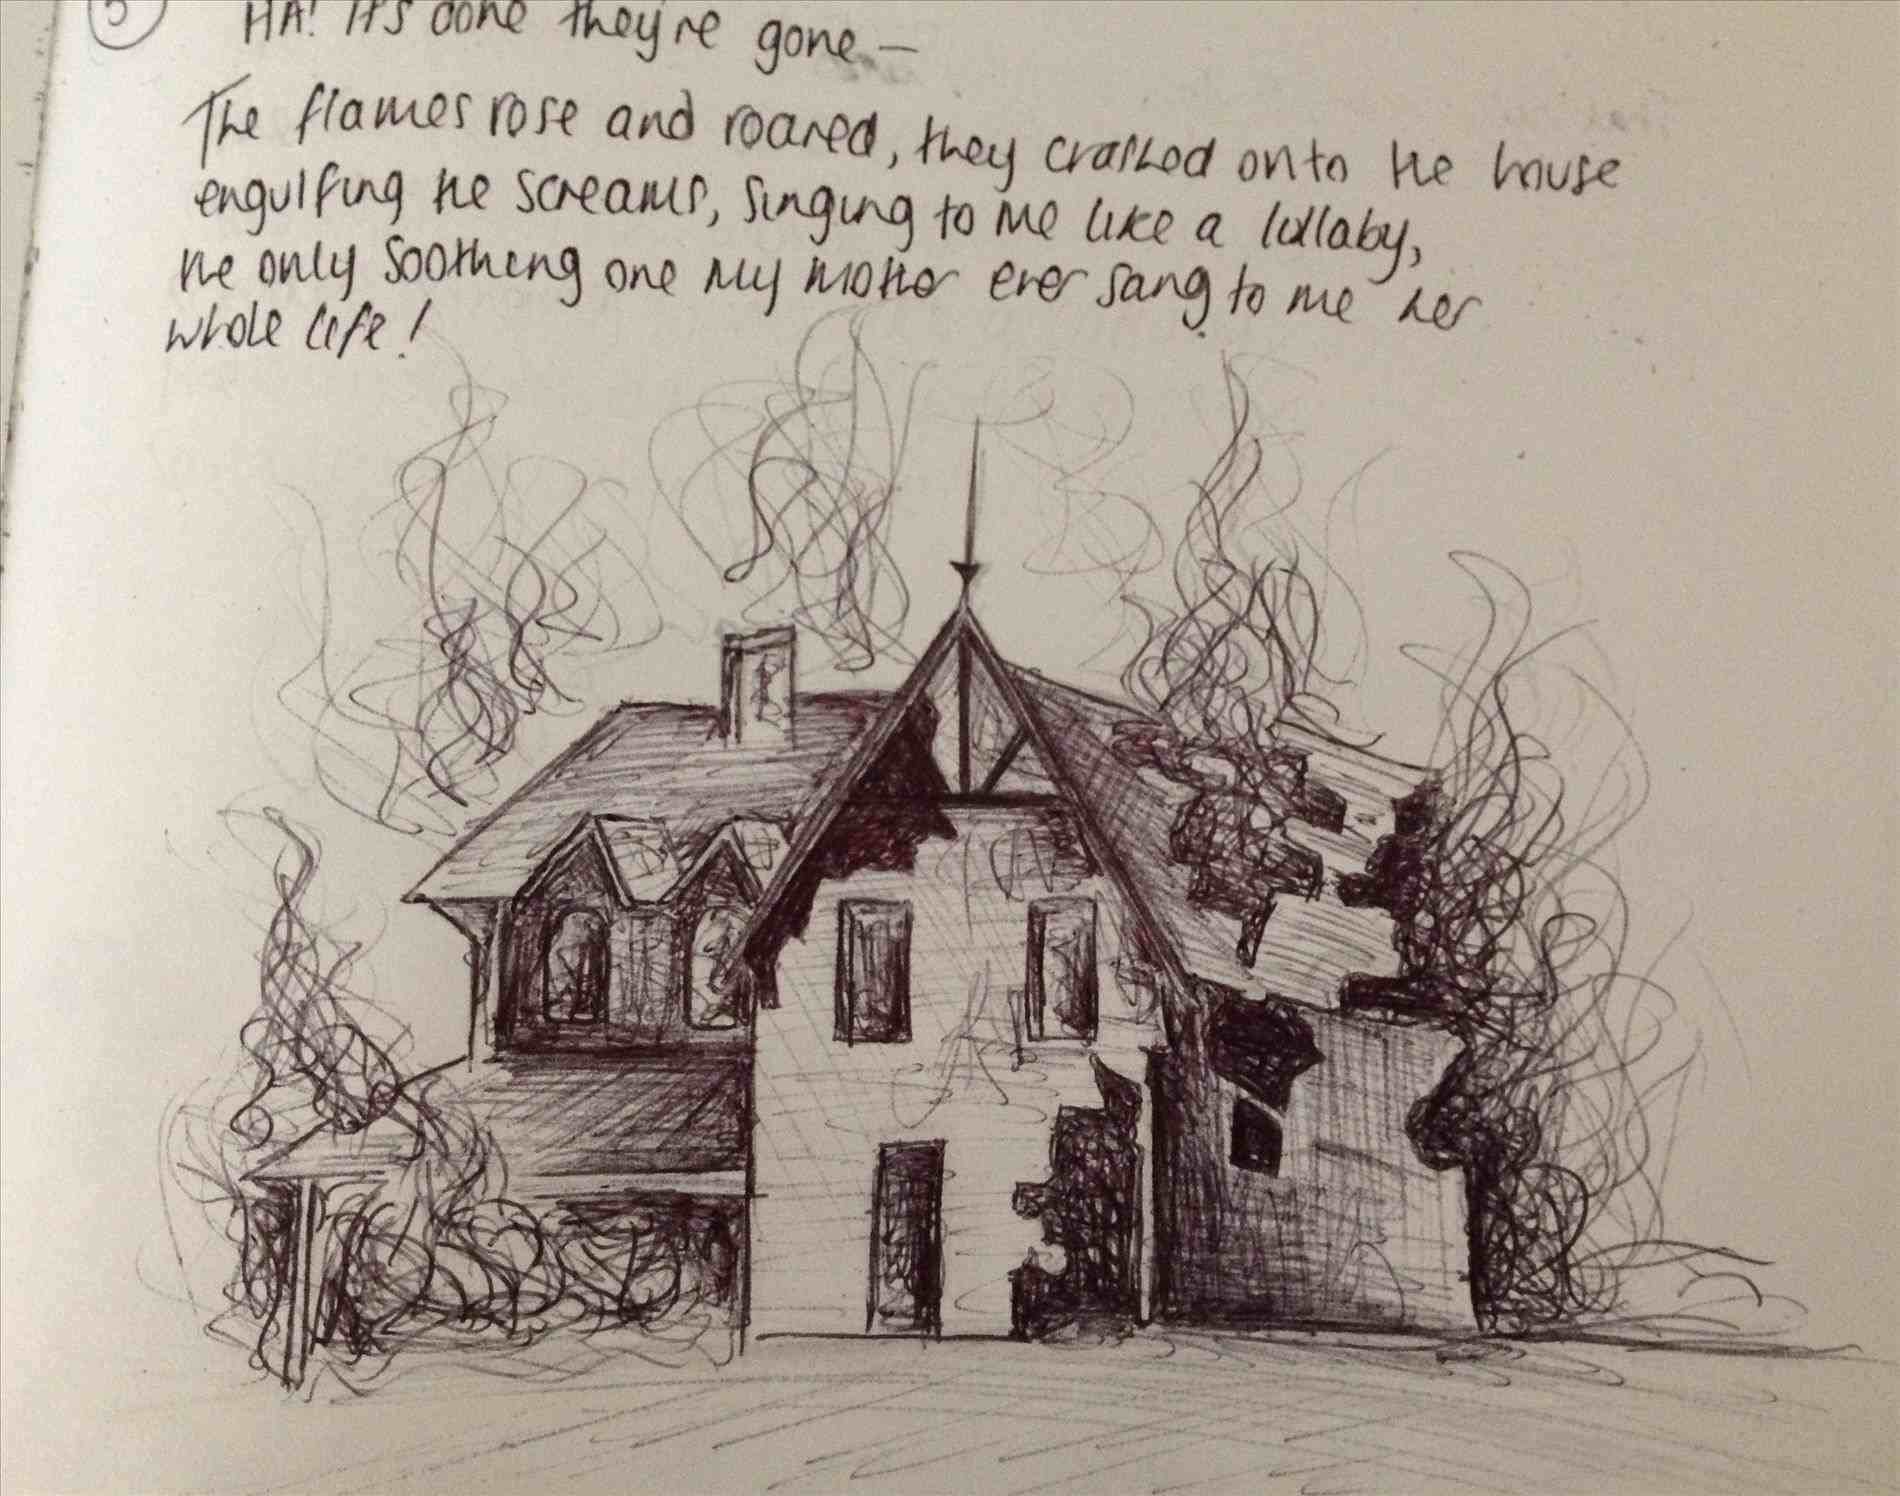 5 HA! It's done they're gone –
The flames rose and roared, they crashed onto the house
engulfing the screams, singing to me like a lullaby,
the only soothing one my mother ever sang to me her
whole life!